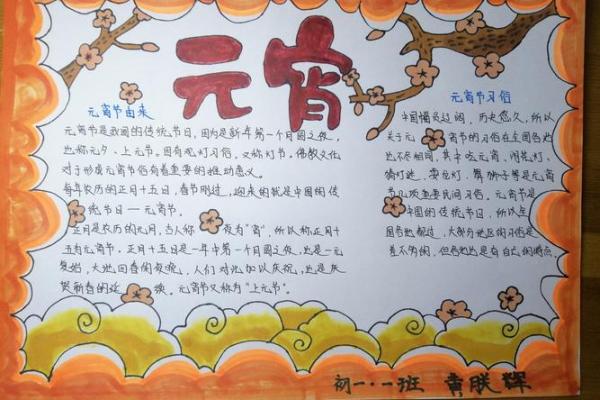 元宵
元宵节由来
元宵节是我国的传统节日,因为是新年第一个月圆之夜,
也称元夕、上元节。因有观灯习俗,又称灯节。佛教文化
对于形成元宵节俗有着重要的推动意义。
每年农历的正月十五日,春节刚过,迎来的就是中国的传
统节日——元宵节。
正月是农历的元月,古人称夜为"宵",所以称正月十
五为元宵节。正月十五日是一年中第一个月圆之夜,也是一元
复始,大地回春的夜晚,人们对此加以庆祝,也是庆
贺新春的延续。元宵节又称为"上元节"。
元宵节习俗
中国幅员辽阔,历史悠久,所以
关于元宵节的习俗在全国各地
也不相同,其中吃元宵、闹花灯、
猜灯谜、舞狮子等是元宵节
几项重要民间习俗。元宵节是
中国的传统节日,所以
全国各地都过,大部分地区的习俗是
差不多的,但各地也是有自己的特点
初一·一班 黄朕辉